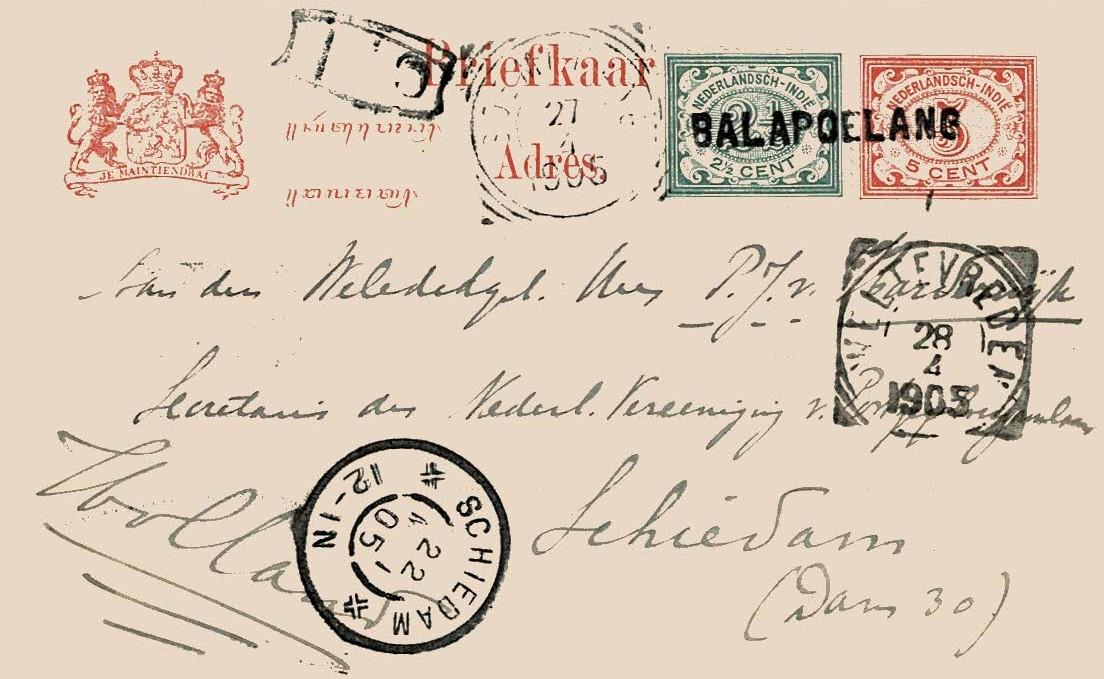 Briefkaar
Adres
JE MAINTIENDRAI
NEDERLANDSCH-INDIE
2½
2½ CENT
NEDERLANDSCH-INDIE
5
5 CENT
BALAPOELANG
27
4
1905
WELTEVREDEN
28
4
1905
Aan den WelEdelgel. Heer P.J. v.
Secretaris der Nederl. Vereeniging v.
Holland
Schiedam
(Dam 30)
SCHIEDAM
22
05
12-1N